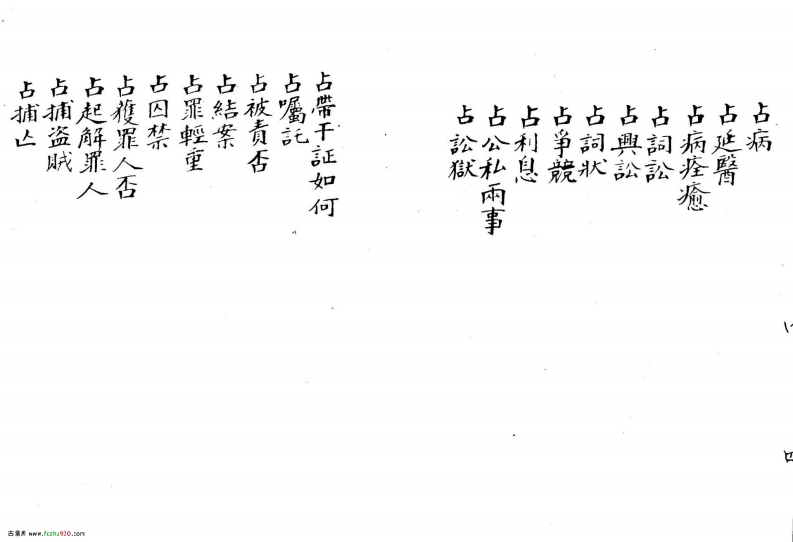 占病
占延醫
占病痊癒
占詞訟
占興訟
占詞狀
占爭競
占利息
占公私兩事
占訟獄
占帶干証如何
占囑託
占被責否
占結案
占罪輕重
占囚禁
占獲罪人否
占起解罪人
占捕盜賊
占捕亾
四
www.fczhu920.com